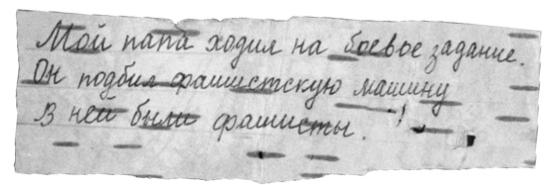 Мой папа ходил на боевое задание.
Он подбил фашистскую машину
В ней были фашисты.